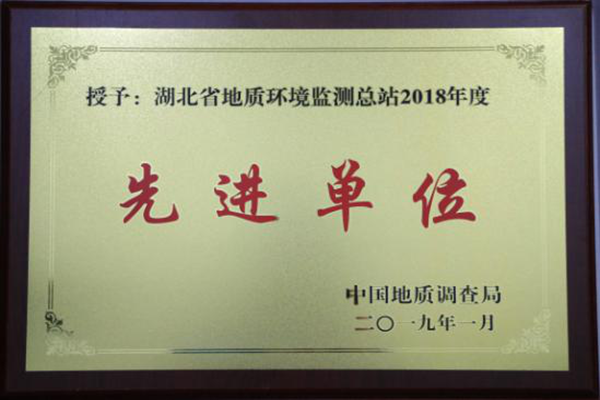 授予：湖北省地质环境监测总站2018年度
先进单位
中国地质调查局
二〇一九年一月